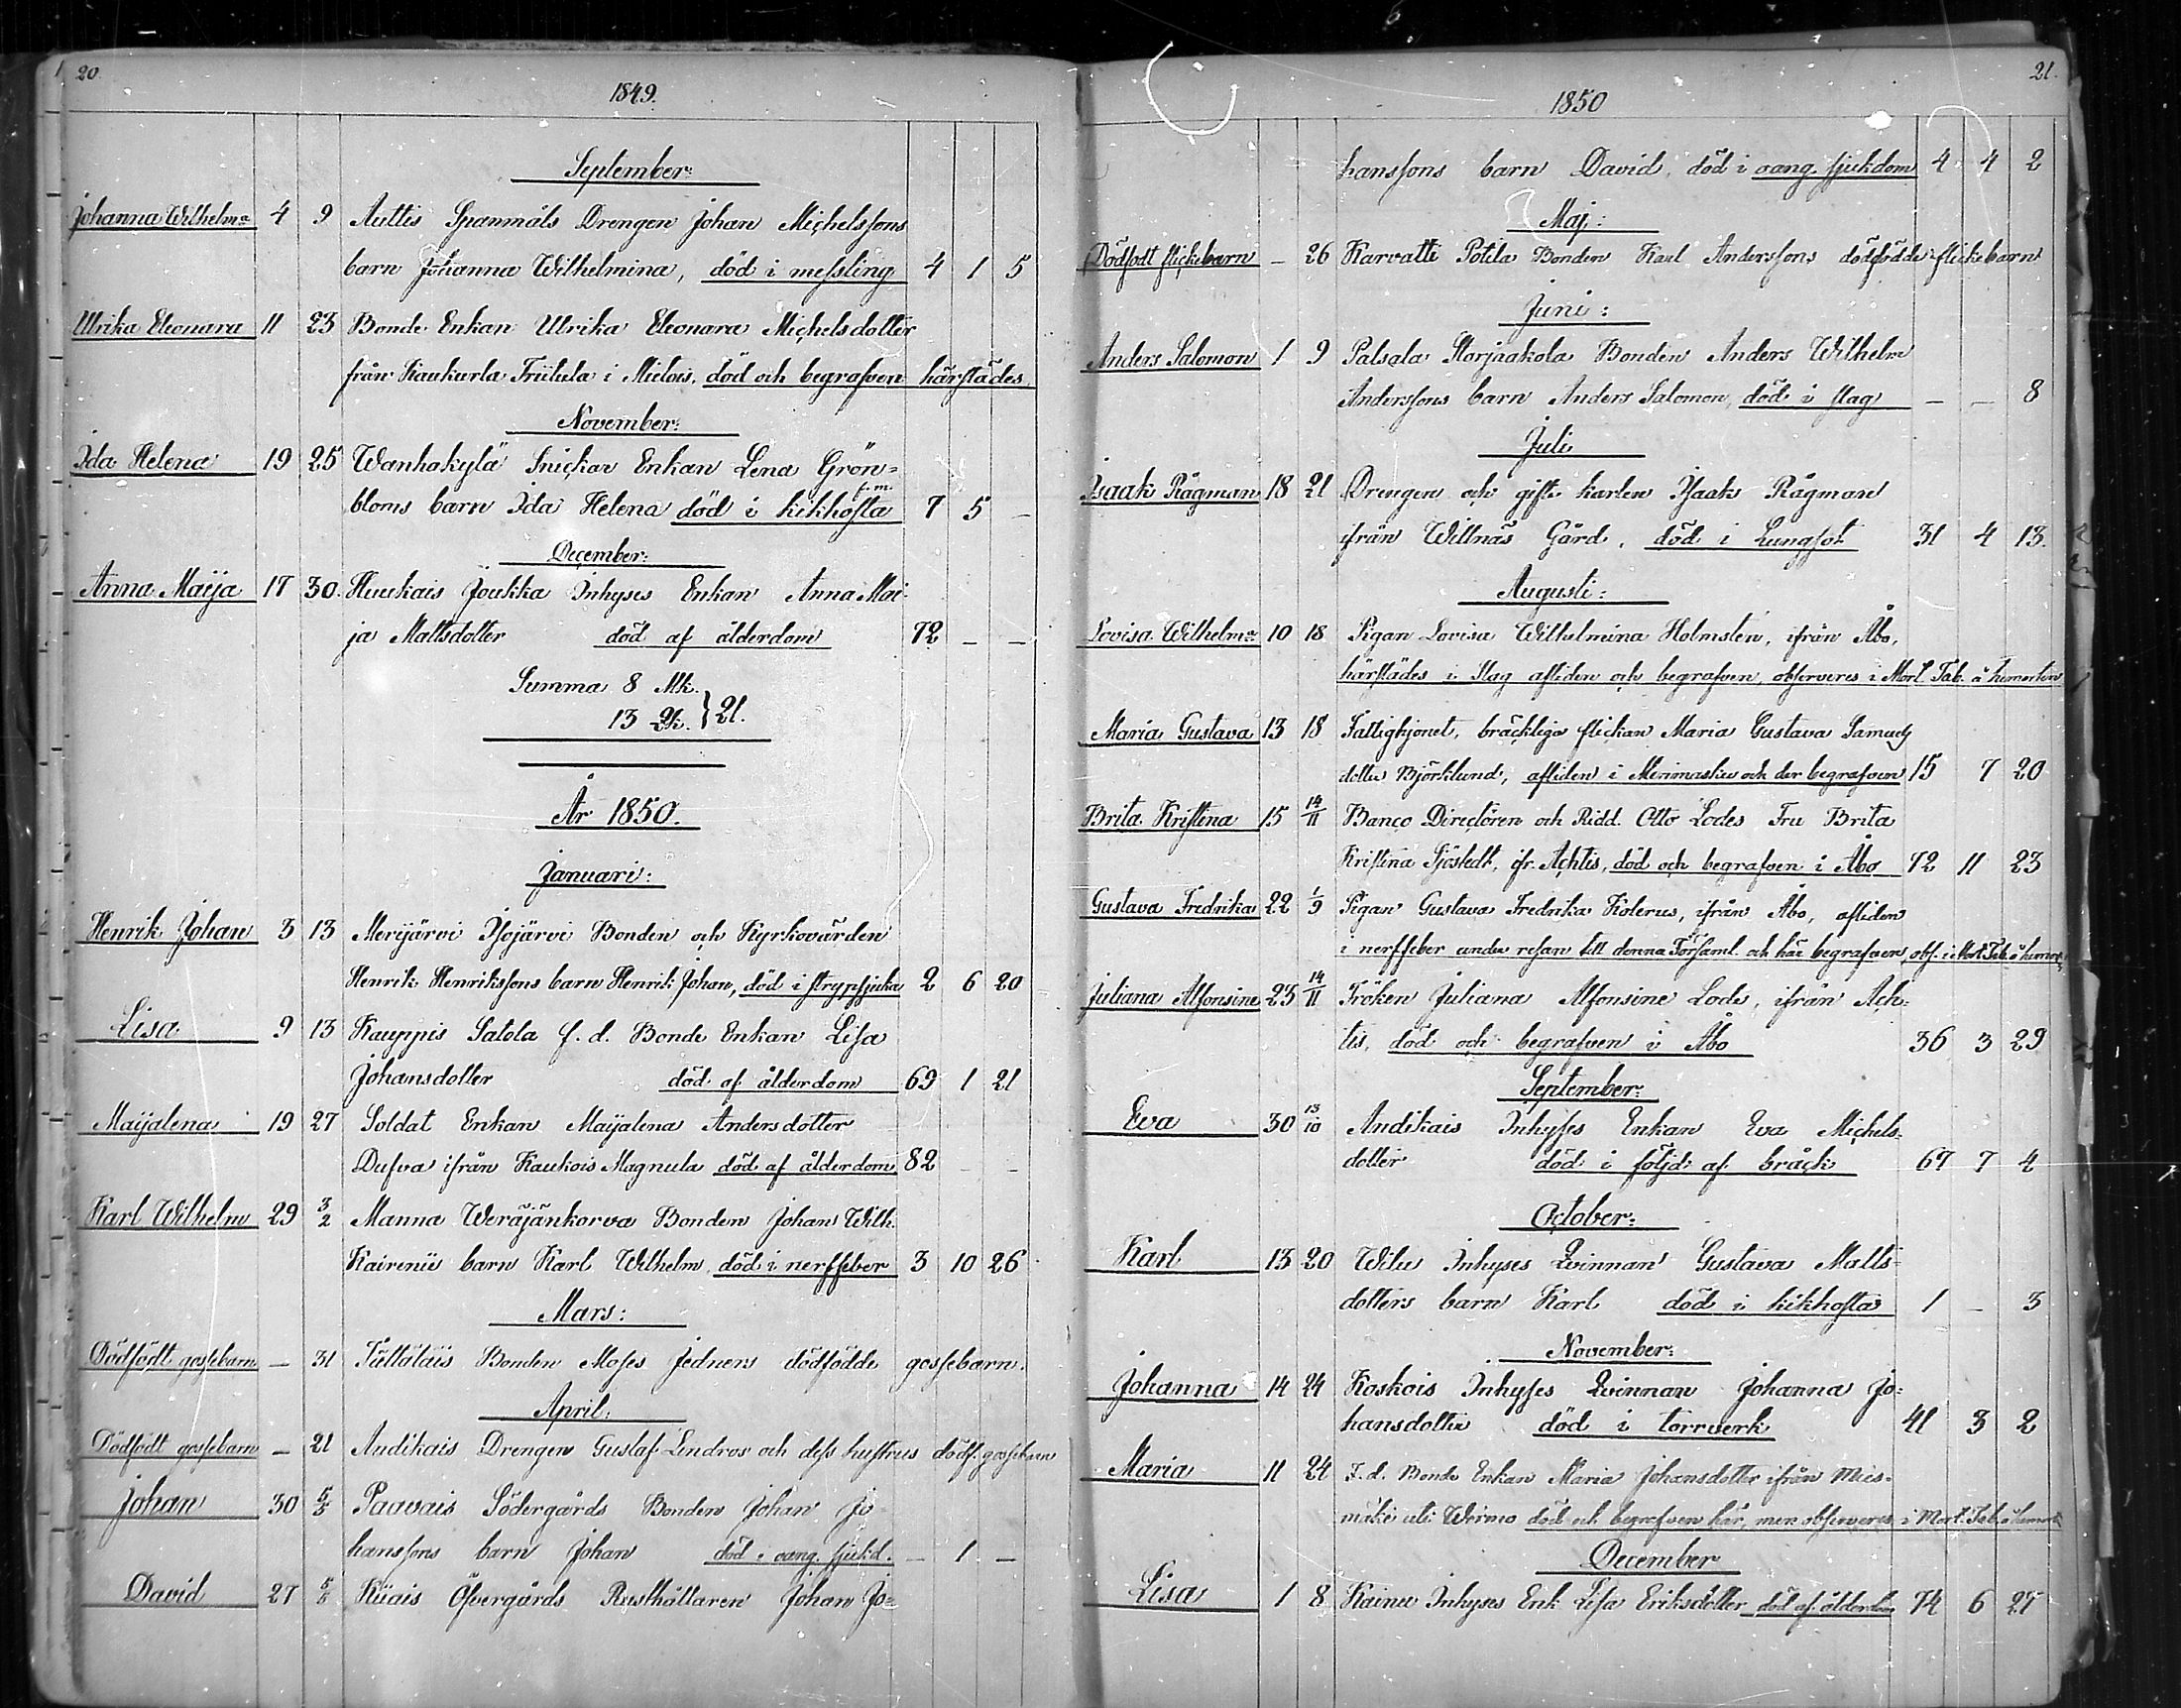 20.
1849.
September:
Johanna Wilhelm:a 4 9 Auttis Spanmåls Drengen Johan Michelssons
barn Johanna Wilhelmina, död i messling 4 1 5
Ulrika Eleonara 11 23 Bonde Enkan Ulrika Eleonara Michelsdotter
från Kaukurla Friilula i Mietois, död och begrafven härstädes.
November:
Ida Helena 19 25 Wanhakylä Snickar Enkan Lena Grön=
bloms barn Ida Helena död i kikhosta 7 5 –
December:
Anna Maija 17 30. Huukais Joukka Inhyses Enkan Anna Mai-
ja Mattsdotter död af ålderdom 72 – –
Summa 8 Mk.
13 Qk. } 21.
År 1850.
Januari:
Henrik Johan 3 13 Merijärvi Isojärvi Bonden och Kyrkovärden
Henrik Henrikssons barn Henrik Johan, död i strypsjuka 2 6 20
Lisa 9 13 Kauppis Satola f. d. Bonde Enkan Lisa
Johansdotter död af ålderdom 69 1 21
Maijalena 19 27 Soldat Enkan Maijalena Andersdotter
Dufva ifrån Kaukois Magnula död af ålderdom 82 – –
Karl Wilhelm 29 3/2 Manna Weräjänkorva Bonden Johan Wilh.
Kairenii barn Karl Wilhelm, död i nerffeber 3 10 26
Mars:
Dödfödt gossebarn – 31 Tättäläis Bonden Moses Jedners dödfödde gossebarn.
April:
Dödfödt gossebarn – 21 Andikais Drengen Gustaf Lindros och dess hustrus dödf. gossebarn
Johan 30 5/5 Paavais Södergårds Bonden Johan Jo-
hanssons barn Johan död i oang. sjukd. – 1 –
David 27 5/5 Kiiais Öfvergårds Rusthållaren Johan Jo=
21.
1850
hanssons barn David, död i oang. sjukdom 4 4 2
Maj:
Dödfödt flickebarn – 26 Karvatti Potila Bonden Karl Anderssons dödfödde flickebarn
Juni:
Anders Salomon 1 9 Palsala Storjaakola Bonden Anders Wilhelm
Anderssons barn Anders Salomon, död i slag – – 8
Juli
Isaak Rågman 18 21 Drengen och gifte karlen Isaak Rågman
ifrån Willnäs Gård, död i Lungsot 31 4 13.
Augusti:
Lovisa Wilhelm:a 10 18 Pigan Lovisa Wilhelmina Holmsten, ifrån Åbo,
härstädes i Slag afliden och begrafven, observeres i Mort. Tab. å hemorten
Maria Gustava 13 18 Fattighjonet, bräckliga flickan Maria Gustava Samuels
dotter Björklund, afliden i Merimasku och der begrafven 15 7 20
Brita Kristina 15 14/11 Banco Directören och Ridd. Otto Lodes Fru Brita
Kristina Sjöstedt, ifr. Achtis, död och begrafven i Åbo 72 11 23
Gustava Fredrika 22 1/9 Pigan Gustava Fredrika Kolerus, ifrån Åbo, afliden
i nerffeber under resan till denna Församl. och här begrafven, obs. i Mort. Tab. å hemort.
Juliana Alfonsine 23 14/11 Fröken Juliana Alfonsine Lode, ifrån Ach=
tis, död och begrafven i Åbo 36 3 29
September:
Eva 30 13/10 Andikais Inhyses Enkan Eva Michels-
dotter död i följd af bråck 67 7 4
October:
Karl 13 20 Wilu Inhyses Qvinnan Gustava Matts=
dotters barn Karl död i kikhosta 1 – 3
November:
Johanna 14 24 Koskois Inhyses Qvinnan Johanna Jo=
hansdotter död i torrverk 41 3 2
Maria 11 24 F. d. Bonde Enkan Maria Johansdotter ifrån Mies=
mäki uti Wirmo död och begrafven här, men observeres i Mort. Tab. å hemort.
December
Lisa 1 8 Kainu Inhyses Enk. Lisa Eriksdotter död af ålderdom 74 6 27